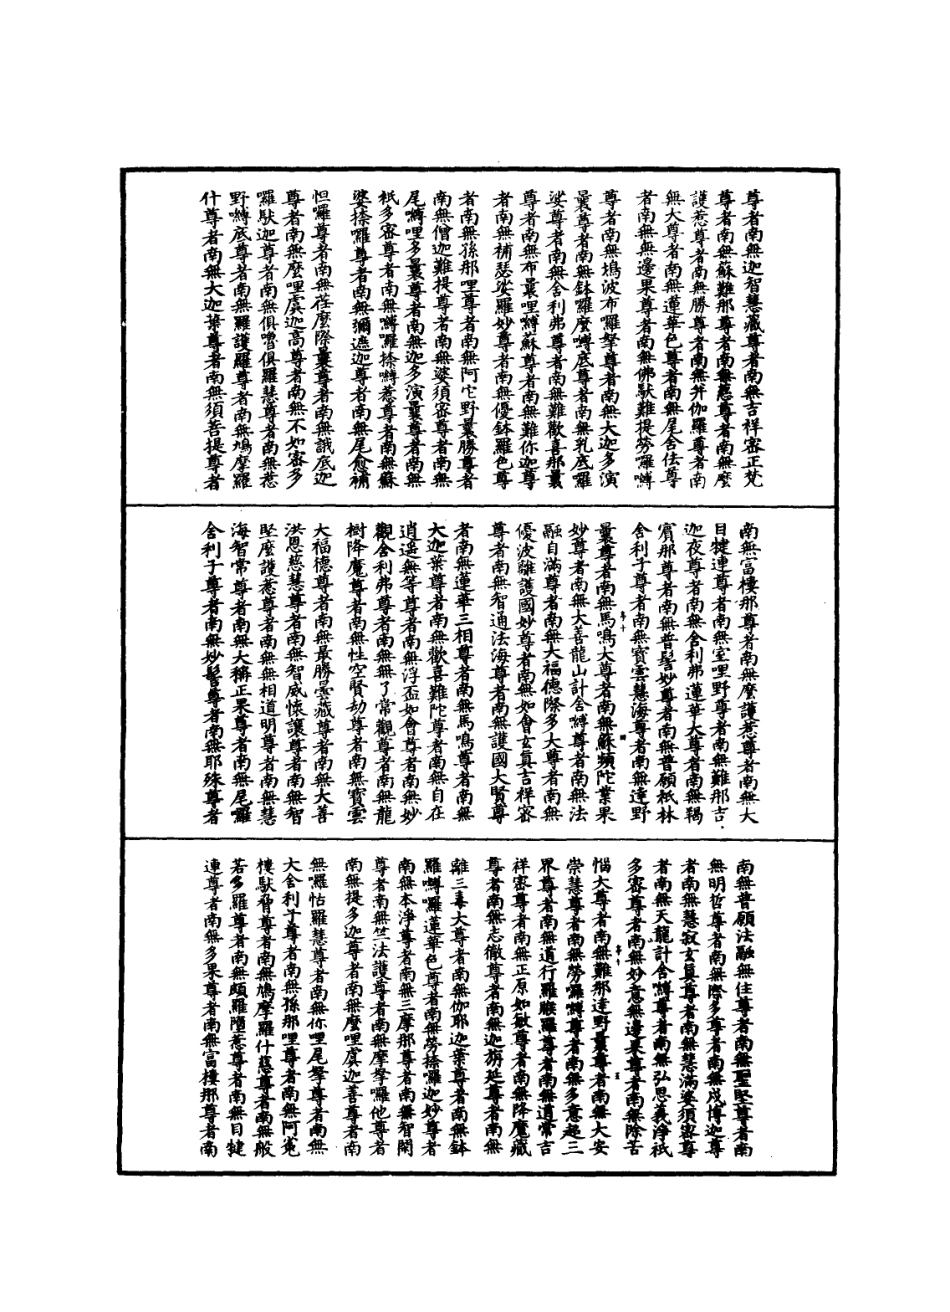 尊者南無迦智慧藏尊者南無吉祥密正梵
尊者南無蘇難那尊者南無慈尊者南無麼
護惹尊者南無勝尊者南無并伽羅尊者南
無大尊者南無蓮華色尊者南無尾舍佉尊
者南無無邊果尊者南無佛馱難提勞囉嚩
尊者南無塢波布囉拏尊者南無大迦多演
曩尊者南無鉢囉麼嚩底尊者南無乳底囉
娑尊者南無舍利弗尊者南無難歡喜那曩
尊者南無布曩哩嚩蘇尊者南無難你迦尊
者南無補瑟娑羅妙尊者南無優鉢羅色尊
者南無孫那哩尊者南無阿它野曩勝尊者
南無僧迦難提尊者南無婆須密尊者南無
尾嚩哩多曩尊者南無迦多演曩尊者南無
秖多密尊者南無嚩囉捺嚩惹尊者南無蘇
婆捺囉尊者南無彌遮迦尊者南無尾愈補
怛囉尊者南無荏麼際曩尊者南無誐底迦
尊者南無麼哩虞迦高尊者南無不如密多
囉馱迦尊者南無俱嚕俱羅慧尊者南無惹
野嚩底尊者南無羅護羅尊者南無鳩摩羅
什尊者南無大迦葉尊者南無須菩提尊者
南無富樓那尊者南無麼護惹尊者南無大
目犍連尊者南無室哩野尊者南無難那吉
迦夜尊者南無舍利弗蓮華大尊者南無羯
賓那尊者南無普髻妙尊者南無普願秖林
舍利子尊者南無寶雲慧海尊者南無達野
曩尊者南無馬鳴大尊者南無蘇頻陀業果
妙尊者南無大善龍山計舍嚩尊者南無法
融自滿尊者南無大福德際多大尊者南無
優波離護國妙尊者南無如會玄真吉祥密
尊者南無智通法海尊者南無護國大賢尊
者南無蓮華三相尊者南無馬鳴尊者南無
大迦葉尊者南無歡喜難陀尊者南無自在
逍遥無等尊者南無浮盃如會尊者南無妙
觀舍利弗尊者南無無了常觀尊者南無龍
樹降魔尊者南無性空賢劫尊者南無寶雲
大福德尊者南無最勝雲藏尊者南無大善
洪恩慈慧尊者南無智威懷讓尊者南無智
堅麼護惹尊者南無無相道明尊者南無慧
海智常尊者南無大稱正果尊者南無尾囉
舍利子尊者南無妙髻尊者南無耶殊尊者
南無普願法融無住尊者南無聖堅尊者南
無明哲尊者南無際多尊者南無戍博迦尊
者南無慧寂玄真尊者南無慧滿婆須密尊
者南無天龍計舍嚩尊者南無弘恩義淨秖
多密尊者南無妙意無邊果尊者南無除苦
惱大尊者南無難那達野曩尊者南無大安
崇慧尊者南無勞囉嚩尊者南無多意超三
界尊者南無道行羅睺羅尊者南無道常吉
祥密尊者南無正原如敏尊者南無降魔藏
尊者南無志徹尊者南無迦旃延尊者南無
離三毒大尊者南無伽耶迦葉尊者南無鉢
囉嚩囉蓮華色尊者南無勞捺囉迦妙尊者
南無本淨尊者南無三摩那尊者南無智閑
尊者南無竺法護尊者南無摩拏囉他尊者
南無提多迦尊者南無麼哩虞迦善尊者南
無羅怙羅慧尊者南無你哩尾拏尊者南無
大舍利子尊者南無孫那哩尊者南無阿㝹
樓馱脅尊者南無鳩摩羅什慧尊者南無般
若多羅尊者南無頗羅墮惹尊者南無目犍
連尊者南無多果尊者南無富樓那尊者南